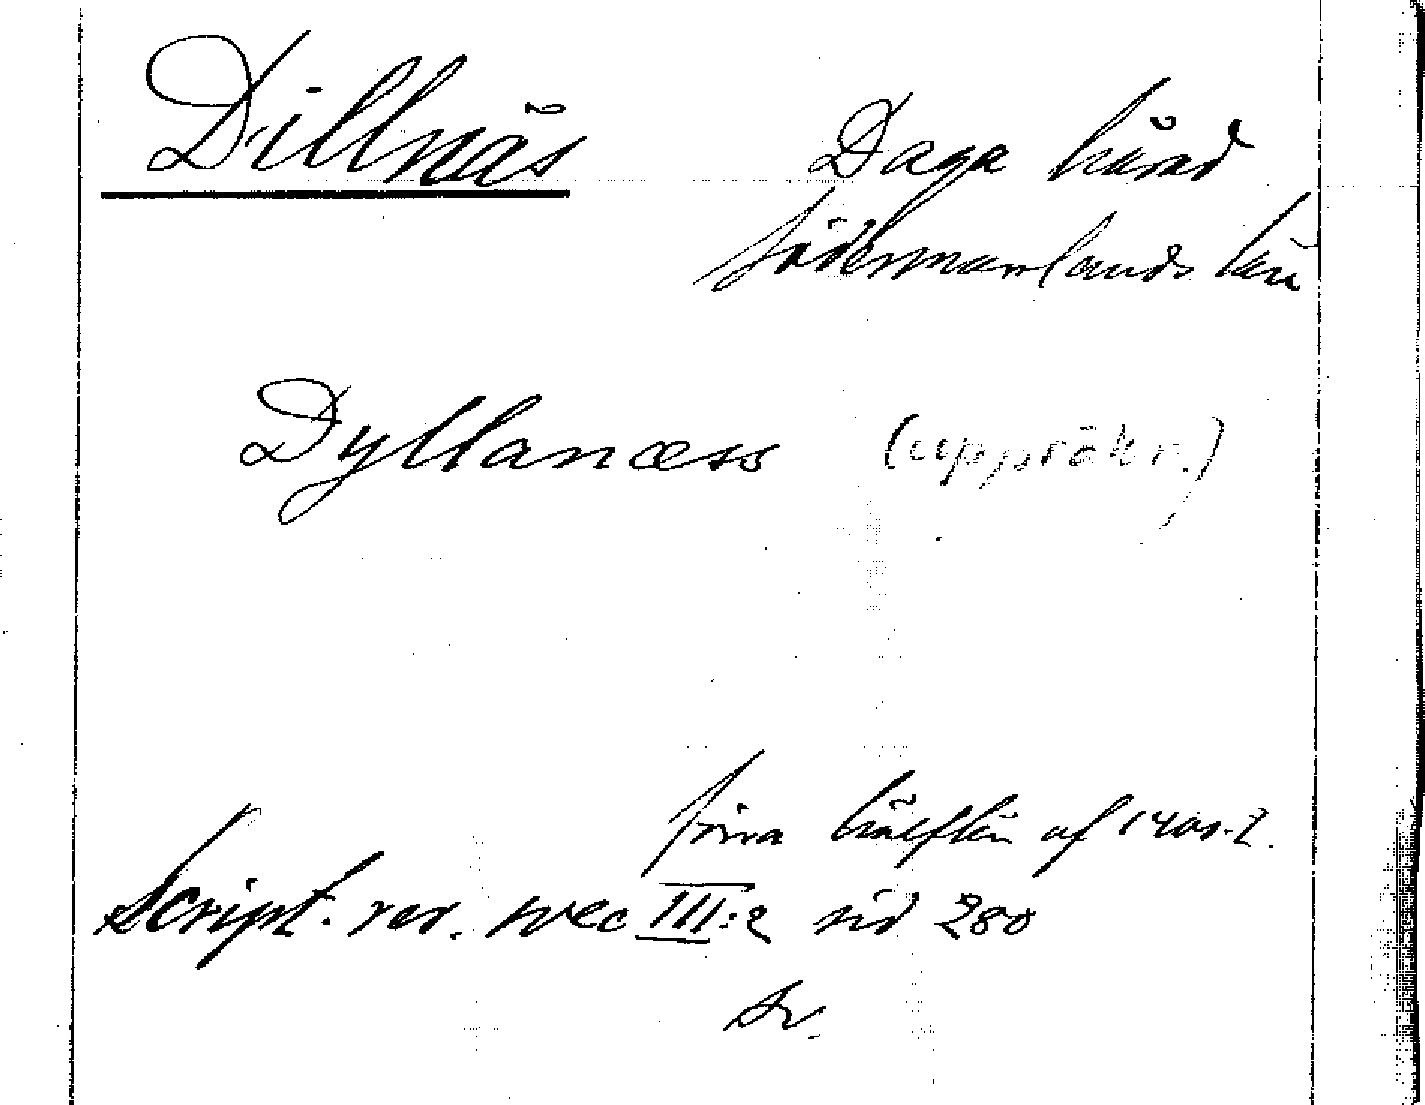 Dillnäs
Daga härad
Södermanlands län
Dyllanæss (uppräkn.)
förra hälften af 1400-t.
Script. rer. svec III:2 sid 280
sv.